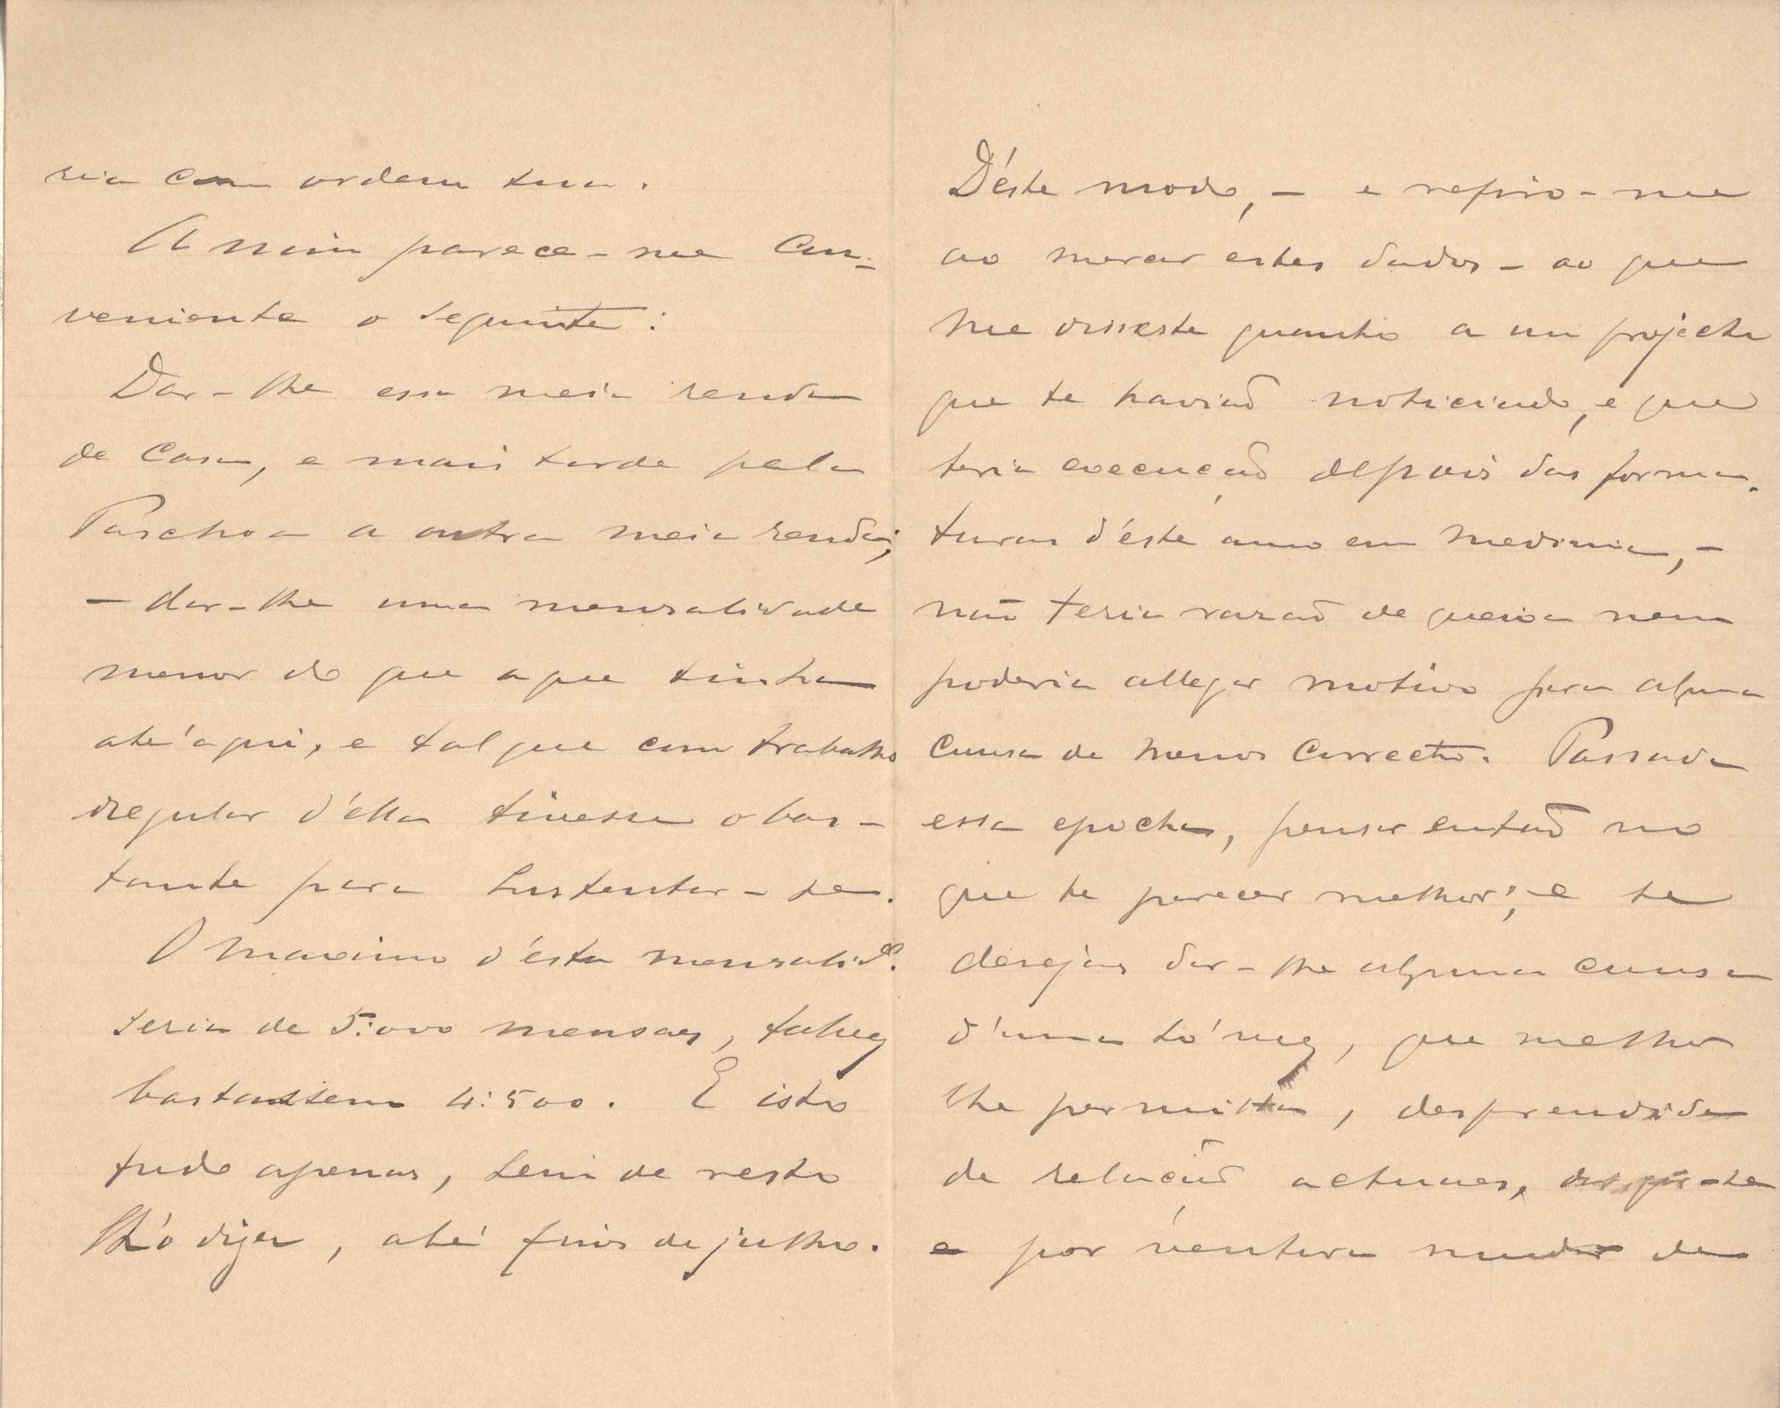 ria com ordem tua.
A mim parece-me con-
veniente o seguinte:
Dar-lhe essa meia renda
de casa, e mais tarde pela
Paschoa a outra meia renda;
- dar-lhe uma mensalidade
menor do que a que tinha
até'aqui, e tal que com trabalho
regular d'ella tivesse o bas-
tante para sustentar-se.
O maximo d'esta mensalid.e
seria de 5:000 mensaes, talvez
bastassem 4:500. E isto
tudo apenas, sem de resto
lh'o dizer, até fins de julho.
D'éste modo, - e refiro-me
ao marcar estes dados - ao que
me disseste quanto a um projecto
que te haviaõ noticiado, e que
teria execuçaõ depois das forma-
turas d'éste anno em medicina, -
naõ teria razaõ de queixa nem
poderia allegar motivo para alguma
cousa de menos correcto. Passada
essa epocha, pensar entaõ no
que te parecer melhor; e se
desejas dar-lhe alguma cousa
d'uma só vez, que melhor
lhe permitta, desprendida
de relaçaõ actuaes,
e por ventura mudar de